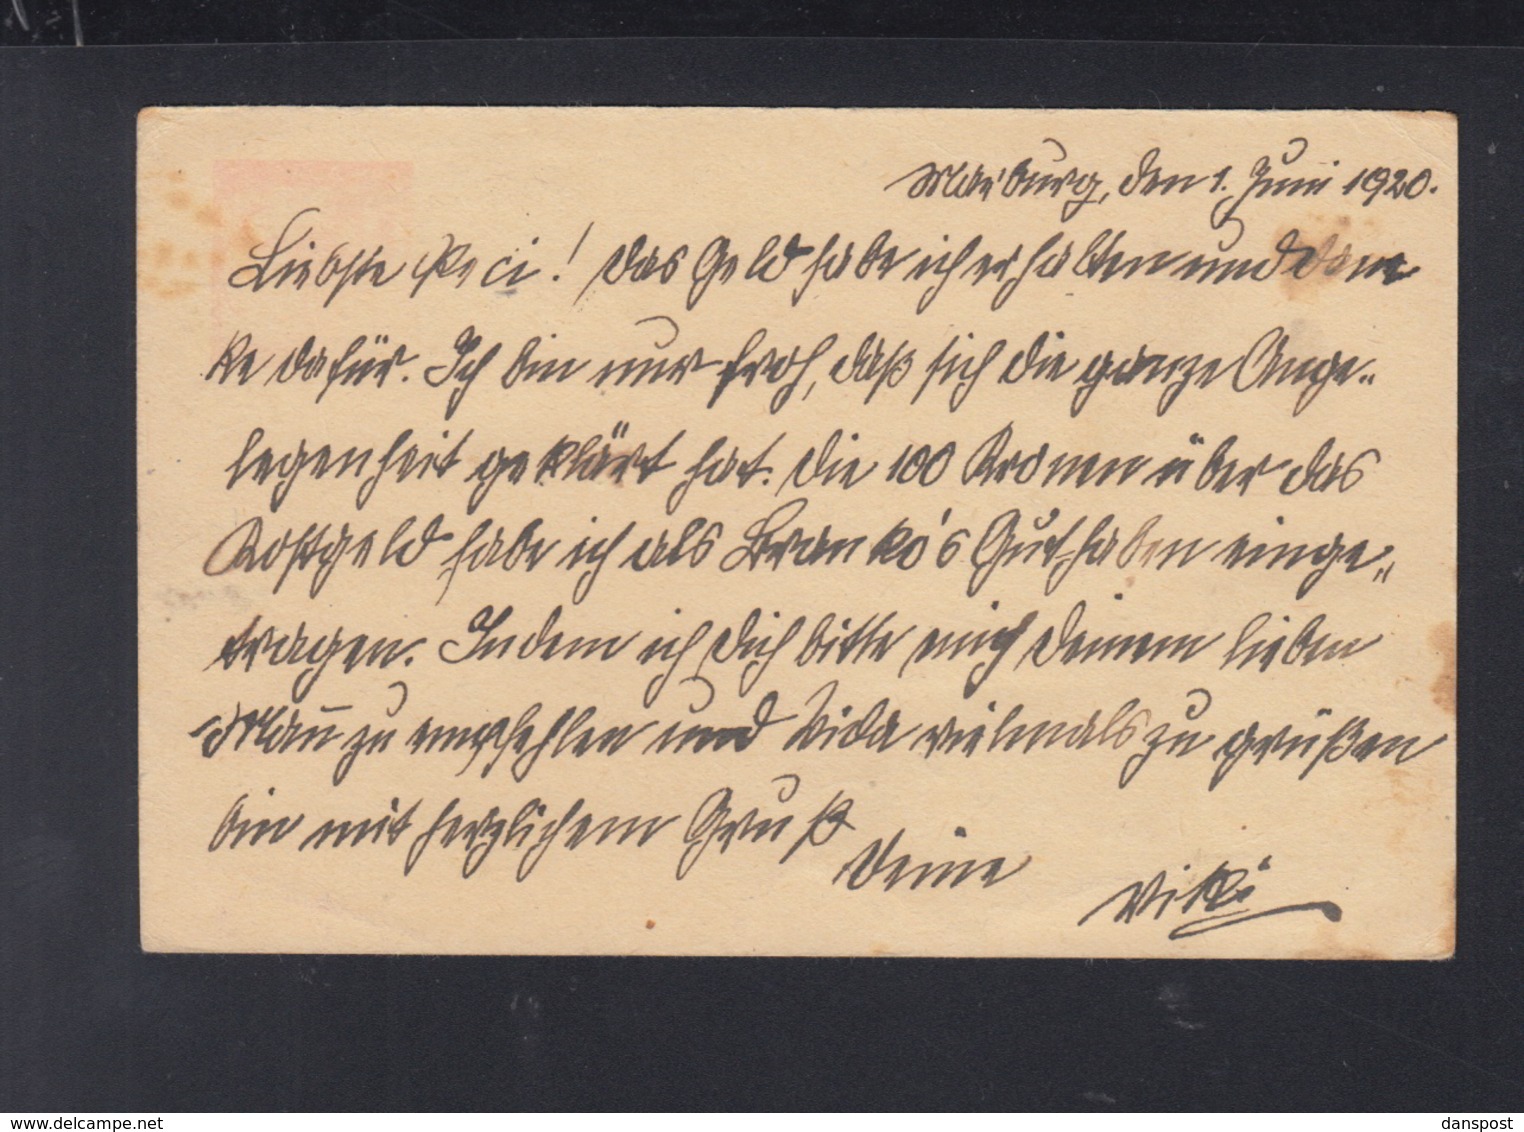 Marburg, den 1. Juni 1920.
Liebste Reci! Das Geld habe ich erhalten und dan
ke dafür. Ich bin nur froh, daß sich die ganze Ange„
legenheit geklärt hat. Die 100 Kronen über das
Kostgeld habe ich als Branko's Guthaben einge„
tragen. Indem ich Dich bitte mich Deinem lieben
Man̄ zu empfehlen und Vida vielmals zu grüßen
bin mit herzlichem Gruß
Deine
Viki
danspost
www.delcampe.net